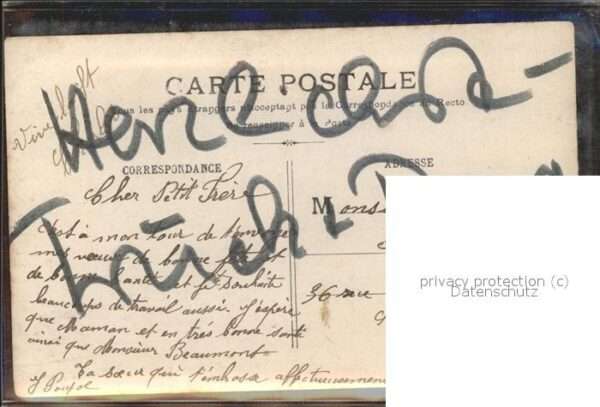 Vive la
CARTE POSTALE
Tous les pays étrangers n'acceptant pas la Correspondance au Recto
se renseigner à la Poste
CORRESPONDANCE
ADRESSE
Cher Petit Frère
C'est à mon tour de t'envoyer
mes vœux de bonne fête et
de bonne santé et je te souhaite
beaucoups de travail aussi. J'espère
que Maman et en très bonne santé
ainsi que Monsieur Beaumont
Ta sœur qui t'embrasse affectueusement
Mons
36 rue
privacy protection (c)
Datenschutz